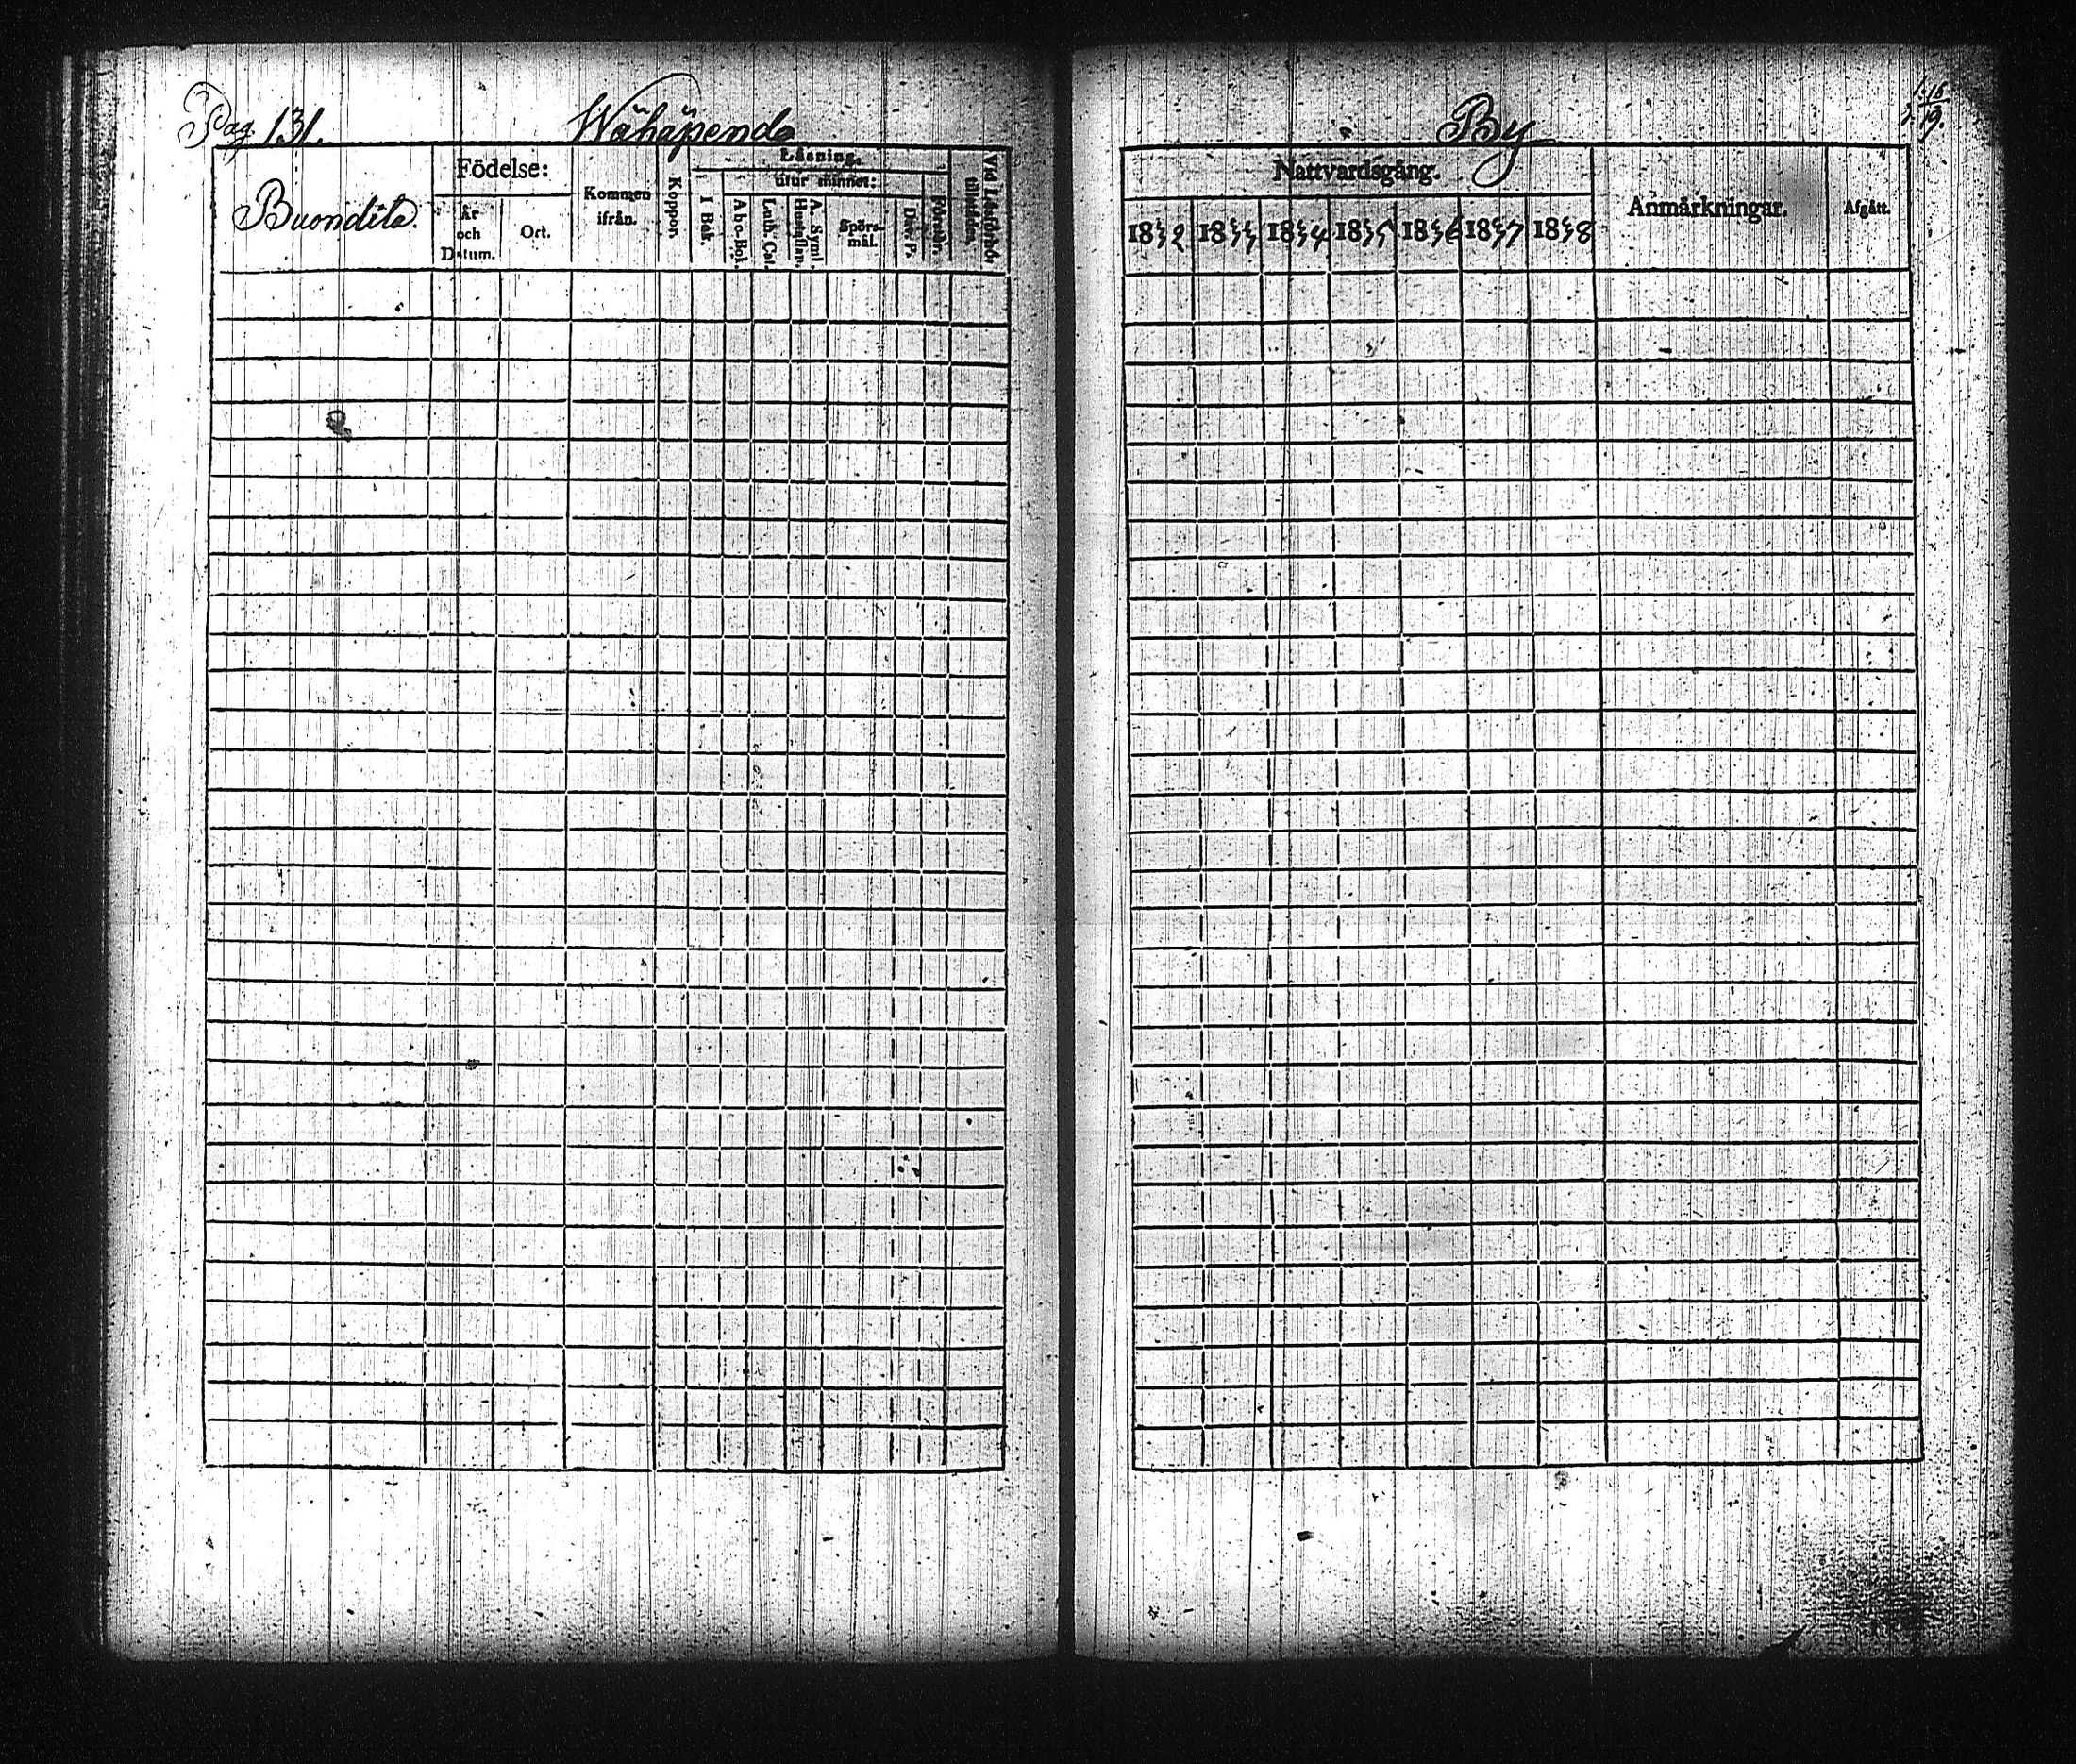 Pag. 131.
Wähäpendo
By
Buondila.
Födelse:
År och Datum.
Ort.
Kommen ifrån.
Koppor.
Läsning.
I Bok.
utur minnet:
Abc-Bok.
Luth. Cat.
A. Symb. Hustaflan.
Spörsmål.
Dav. P.
Förstår.
Vid Läsförhör tillstädes.
Nattvardsgång.
1852 1853 1854 1855 1856 1857 1858
Anmärkningar.
Afgått.